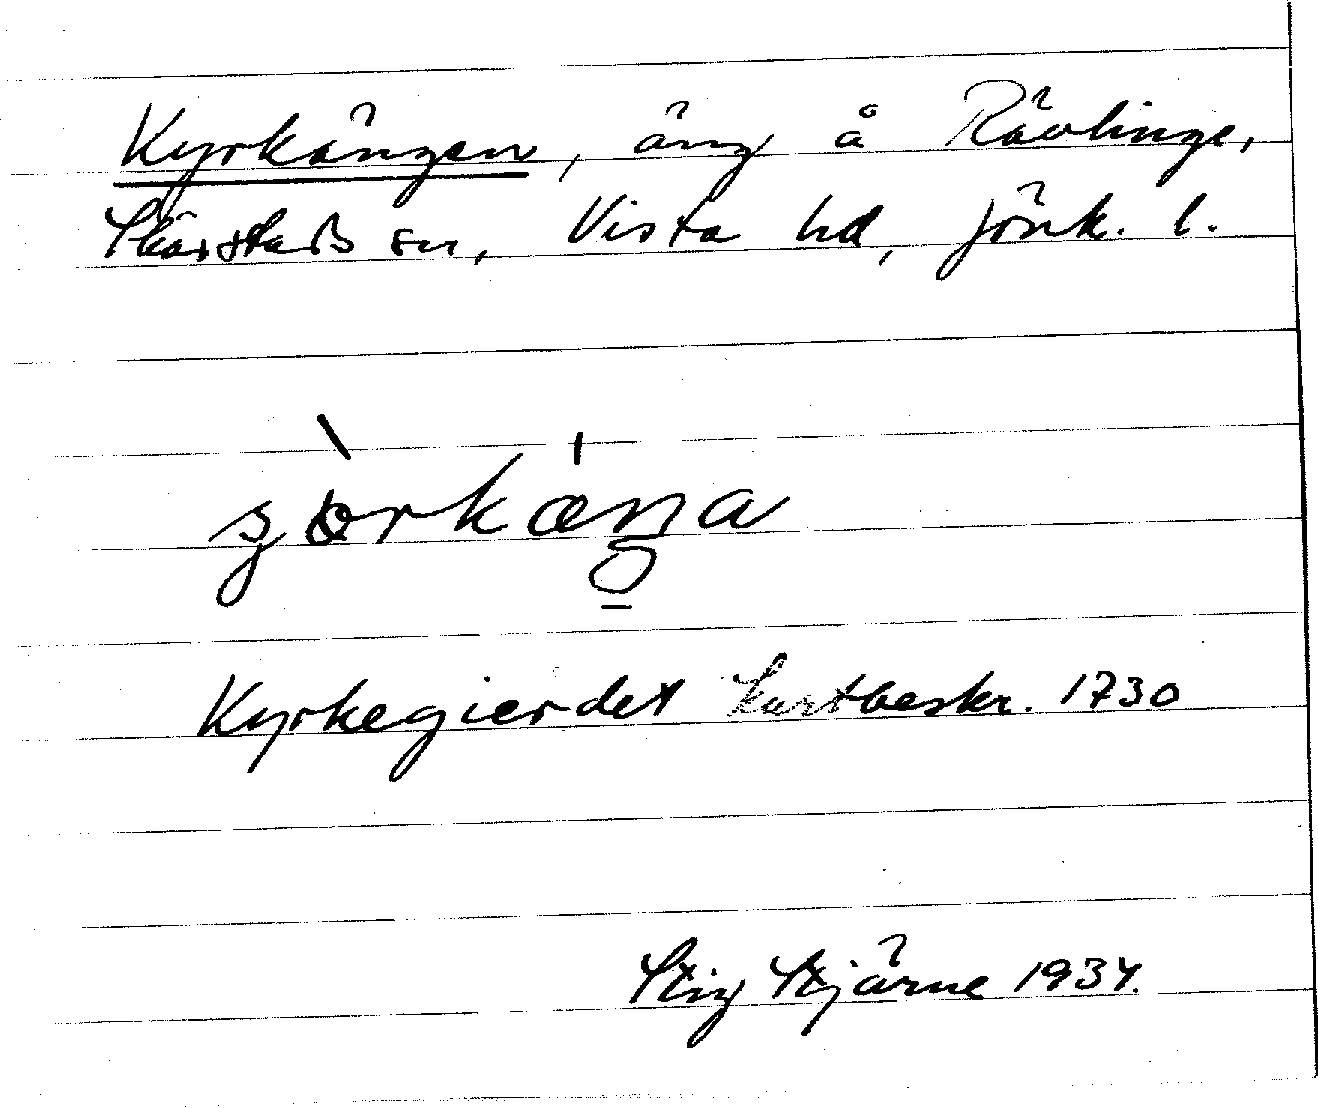 Kyrkängen, äng å Rävlinge,
Skärstads sn, Vista hd, Jönk. l.
Kyrkegierdet Kartbeskr. 1730
Stig Stjärne 1934.